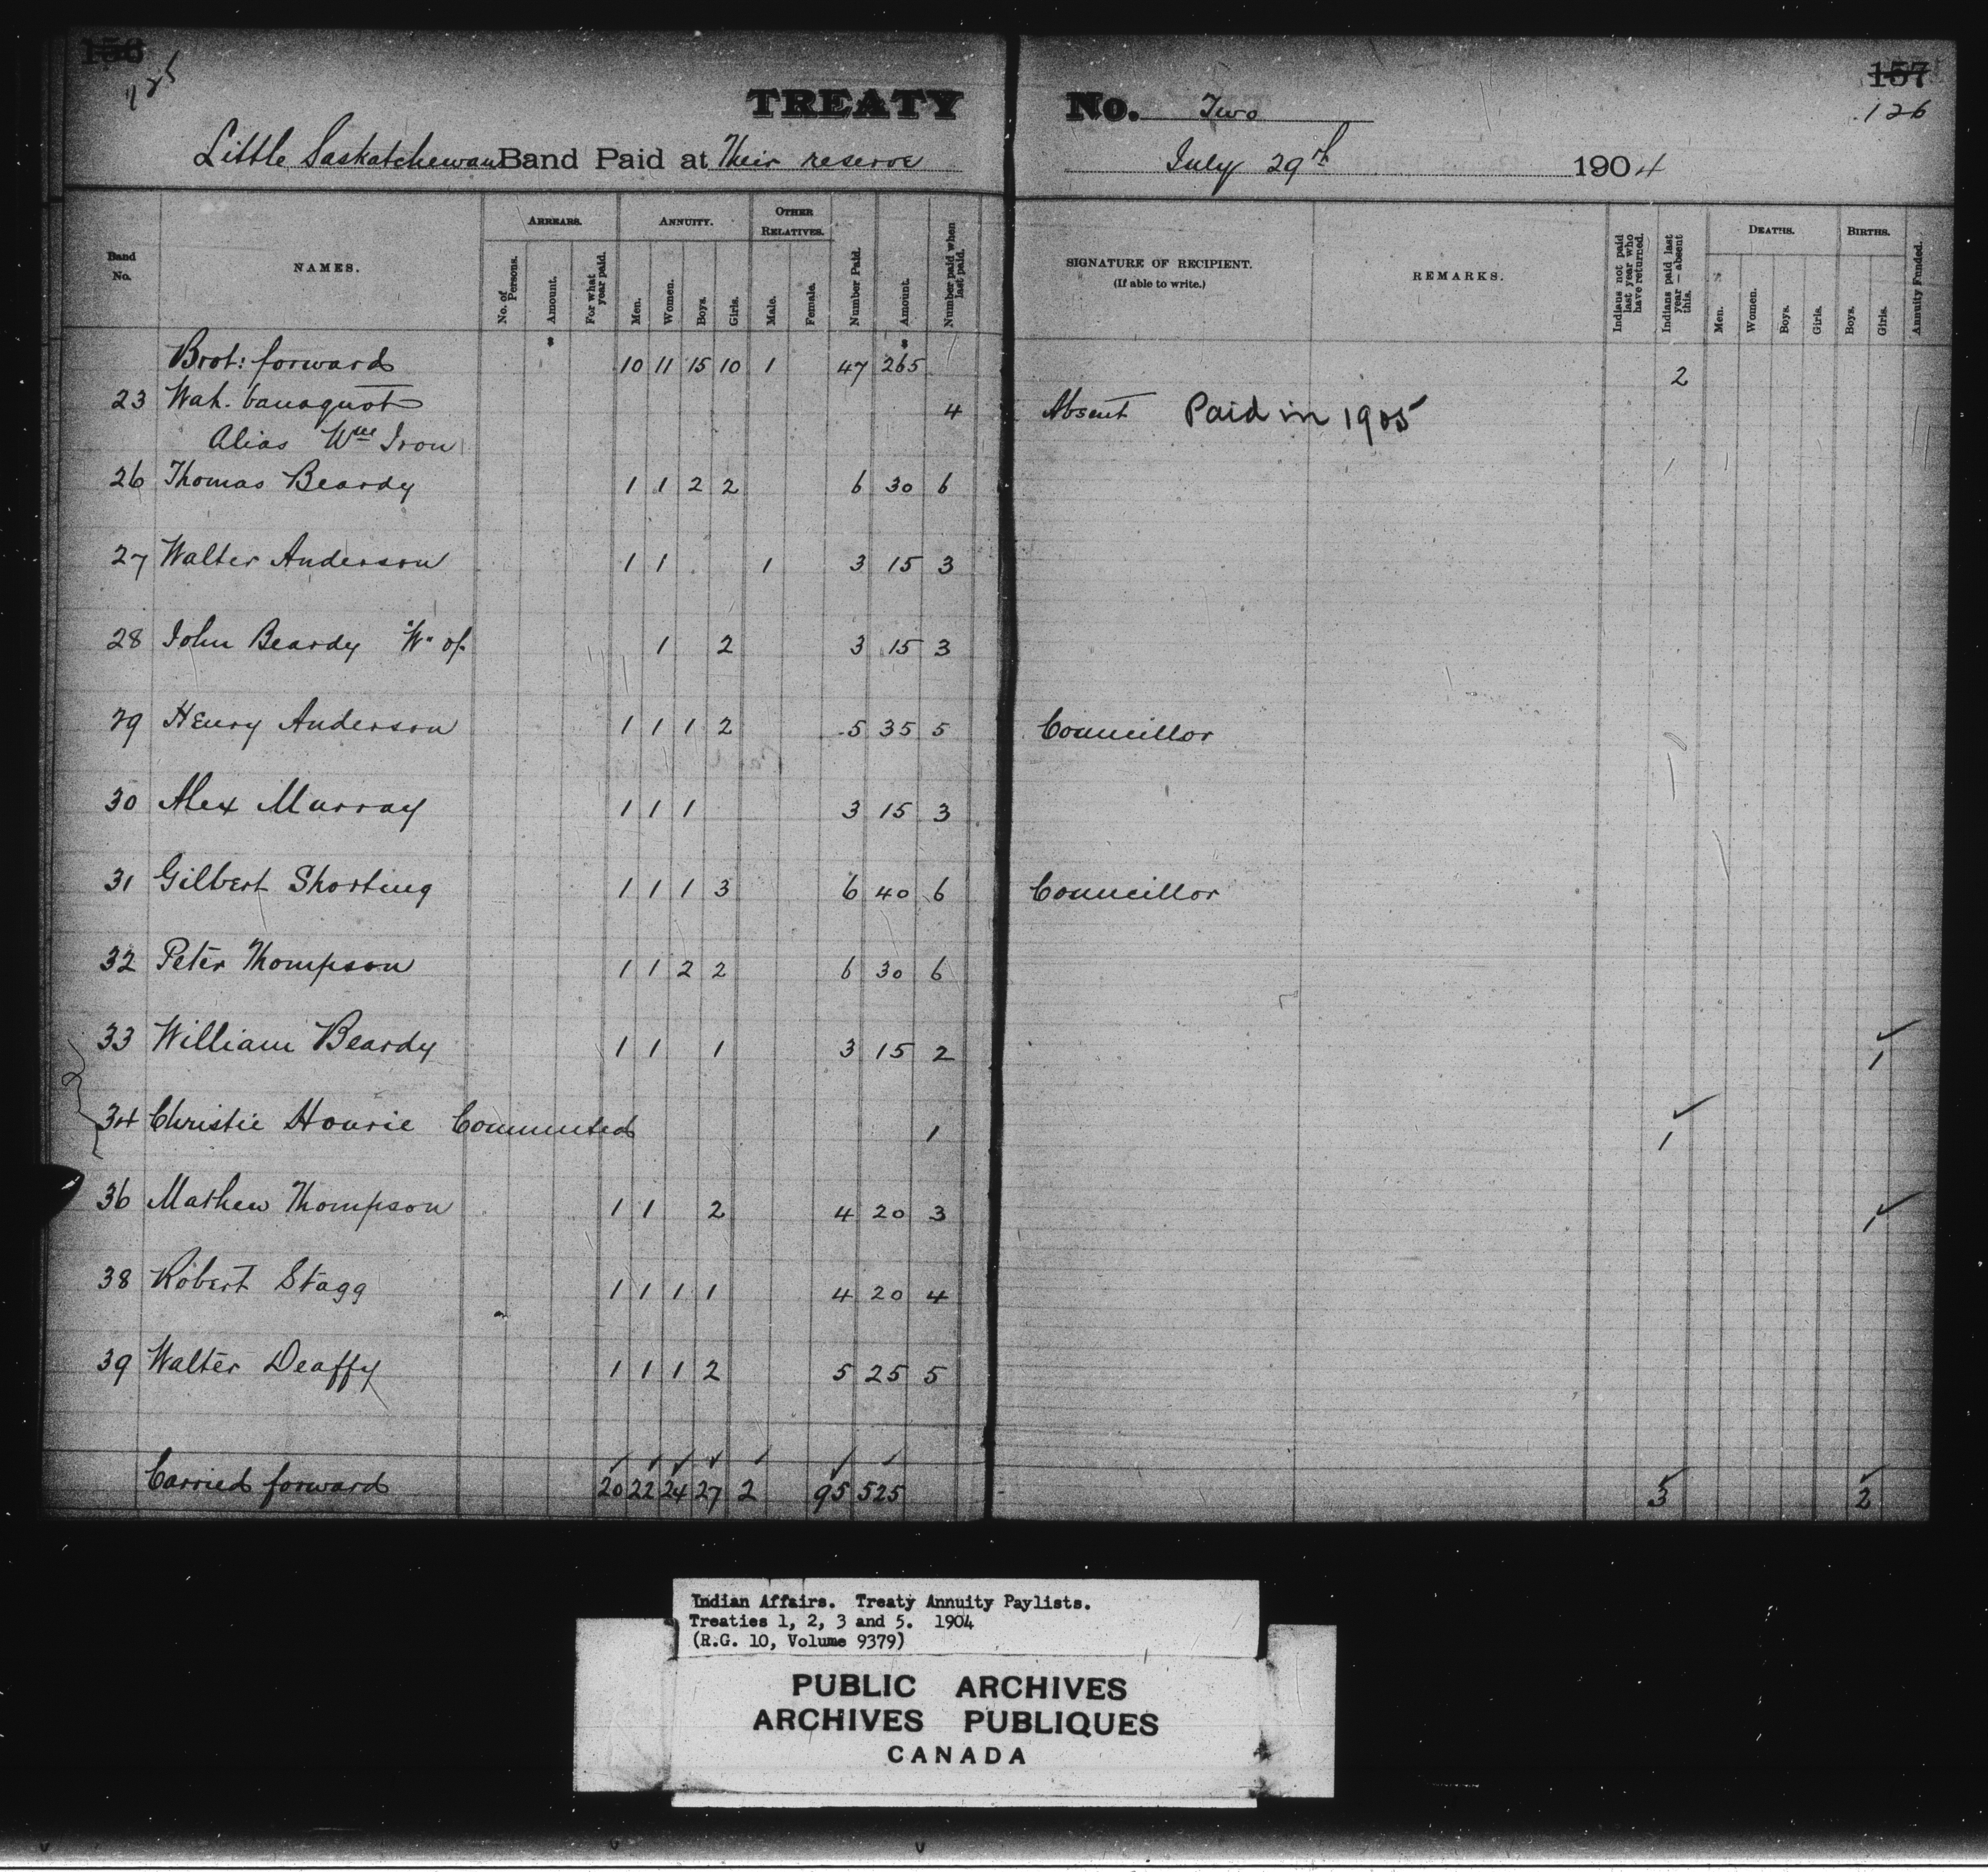 156 157
125 126
TREATY No. Two
Little Saskatchewan Band Paid at Their reserve July 29th 1904
Band No. NAMES. ARREARS. No. of Persons. Amount. For what year paid. ANNUITY. Men. Women. Boys. Girls. OTHER RELATIVES. Male. Female. Number Paid. Amount. Number paid when last paid. SIGNATURE OF RECIPIENT. (If able to write.) REMARKS. Indians not paid last year who have returned. Indians paid last year — absent this. DEATHS. Men. Women. Boys. Girls. BIRTHS. Boys. Girls. Annuity Funded.
Brot: forward 10 11 15 10 1 47 265 2
23 Wah. banaquot 4 Absent Paid in 1905
Alias Wm Iron
26 Thomas Beardy 1 1 2 2 6 30 6
27 Walter Anderson 1 1 1 3 15 3
28 John Beardy "W" of 1 2 3 15 3
29 Henry Anderson 1 1 1 2 5 35 5 Councillor
30 Alex Murray 1 1 1 3 15 3
31 Gilbert Shorting 1 1 1 3 6 40 6 Councillor
32 Peter Thompson 1 1 2 2 6 30 6
33 William Beardy 1 1 1 3 15 2 1
34 Christie Hourie Commuted 1 1
36 Mathew Thompson 1 1 2 4 20 3 1
38 Robert Stagg 1 1 1 1 4 20 4
39 Walter Deaffy 1 1 1 2 5 25 5
Carried forward 20 22 24 27 2 95 525 3 2
Indian Affairs. Treaty Annuity Paylists.
Treaties 1, 2, 3 and 5. 1904
(R.G. 10, Volume 9379)
PUBLIC ARCHIVES
ARCHIVES PUBLIQUES
CANADA